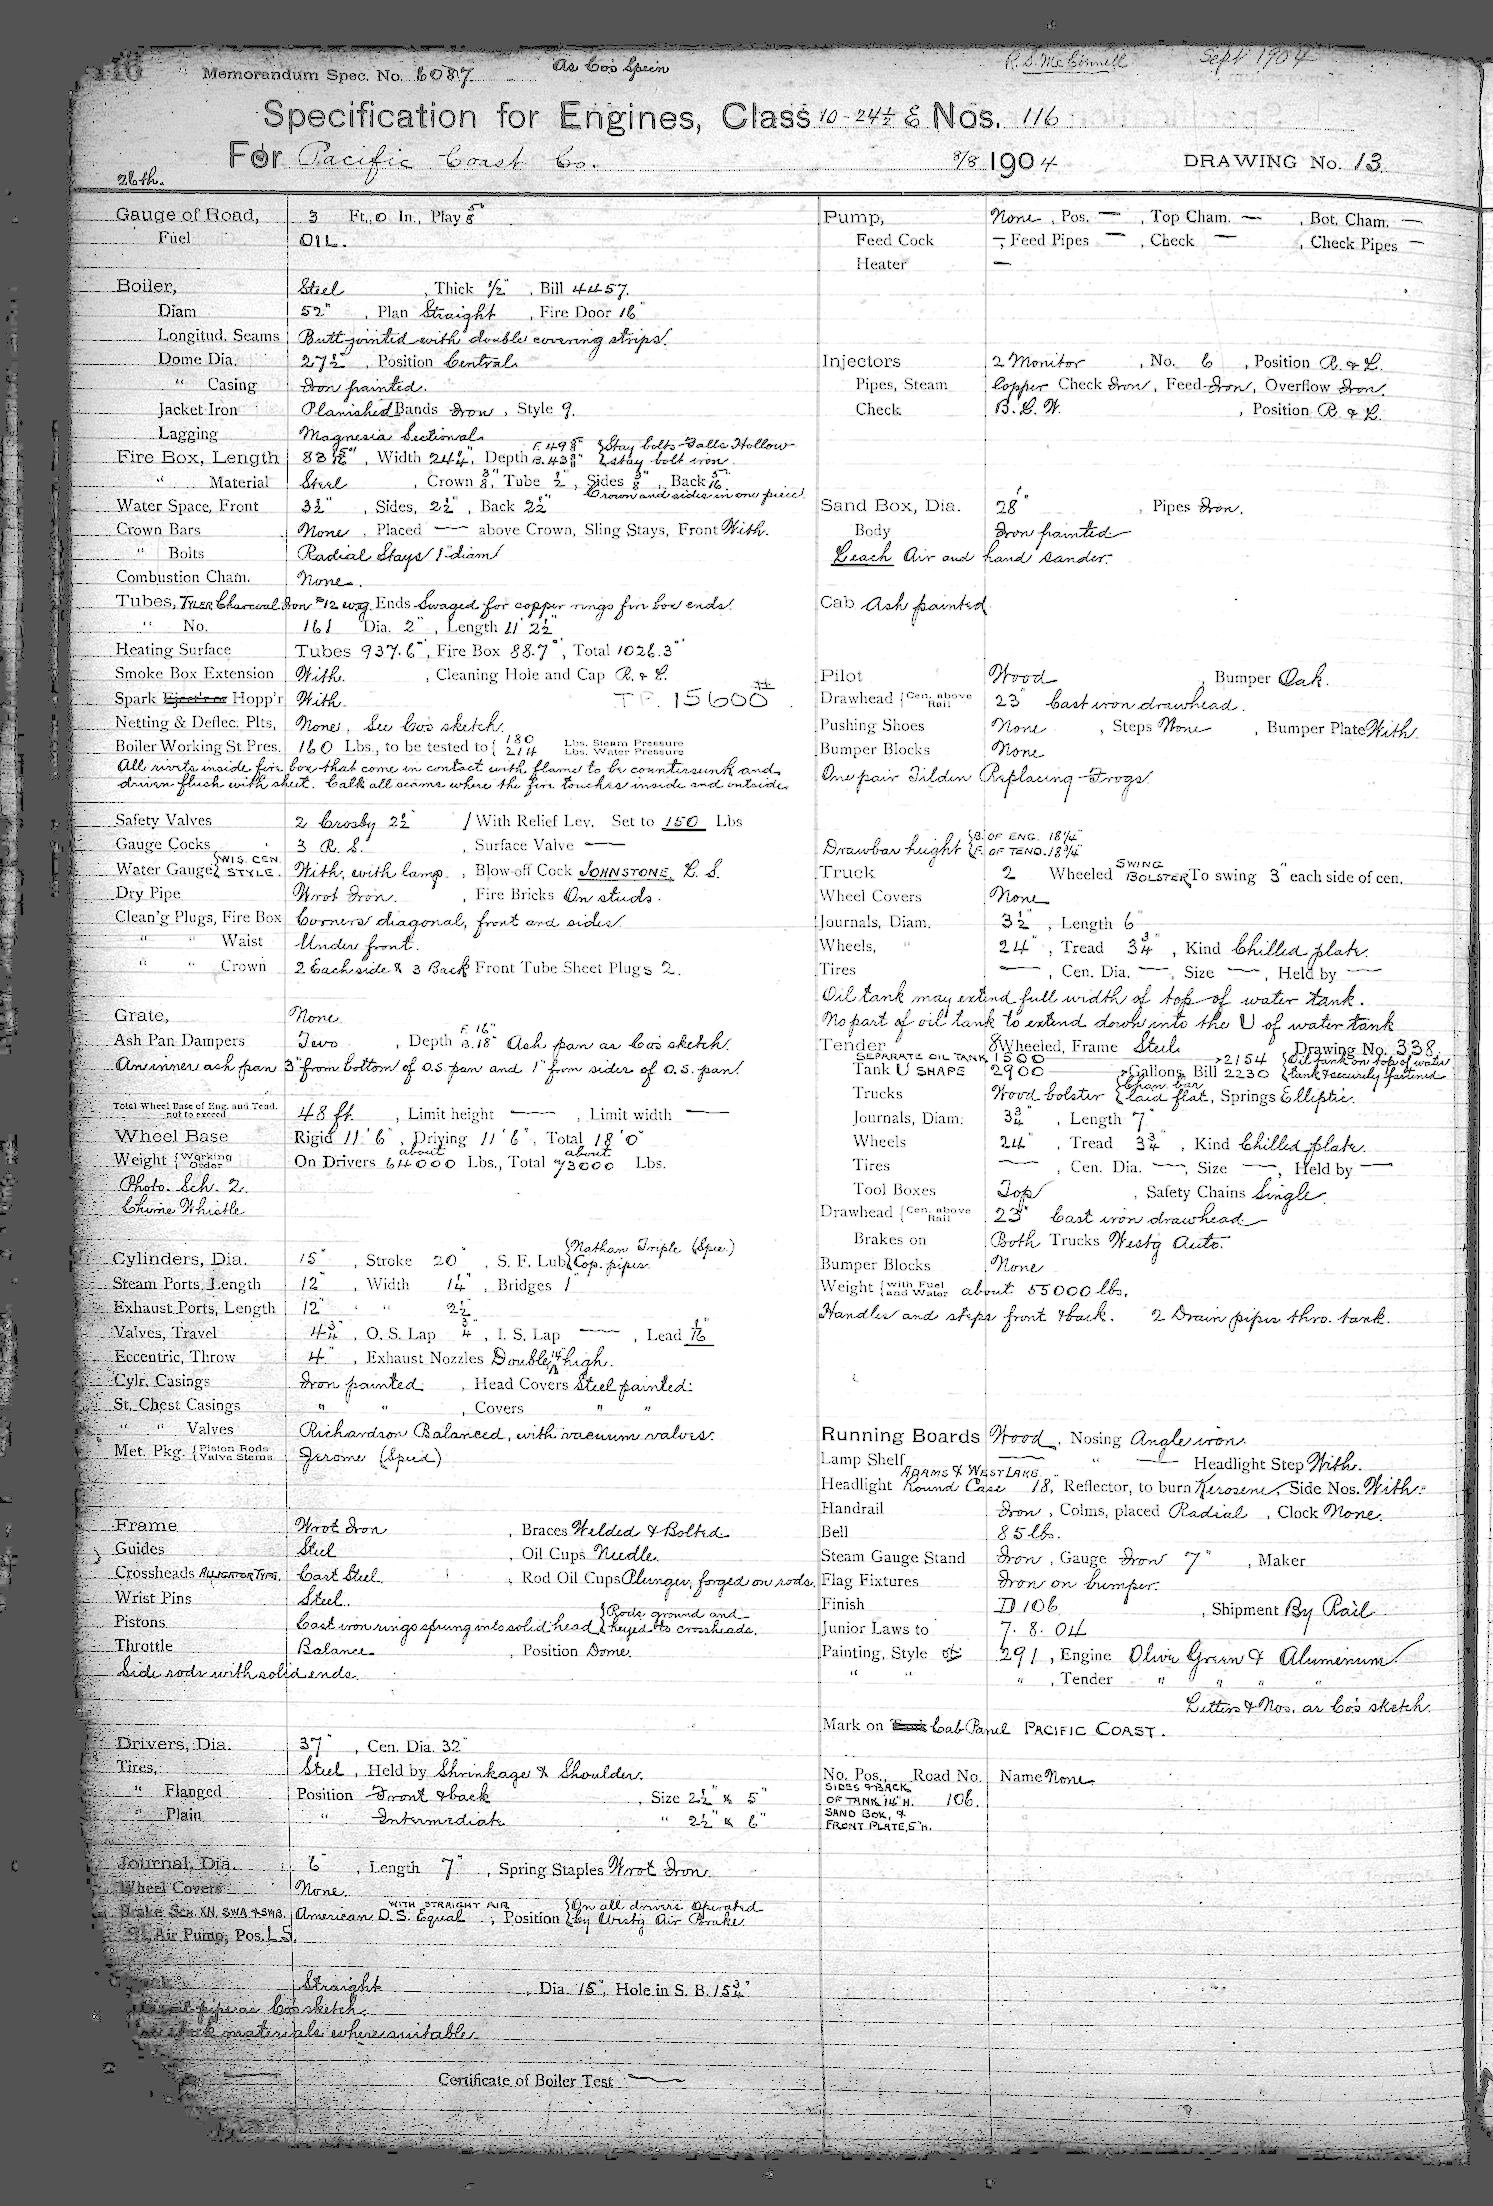 116
Memorandum Spec. No. 6087
As Co's Specn
R.S. McConnell
Sept 1904
Specification for Engines, Class 10-24½ E Nos. 116
For Pacific Coast Co. 8/8 1904 DRAWING No. 13
26th.
Gauge of Road, 3 Ft., 0 In., Play 5/8"
Fuel OIL.
Boiler, Steel , Thick ½" , Bill 4457.
Diam 52" , Plan Straight , Fire Door 16"
Longitud. Seams Butt jointed with double covering strips.
Dome Dia. 27½" , Position Central
" Casing Iron painted.
Jacket Iron Planished Bands Iron , Style 9.
Lagging Magnesia Sectional
Fire Box, Length 83 15/16" , Width 24¼", Depth F. 49 5/8" B. 43 5/8" {Stay bolts Falls Hollow stay bolt iron.
" Material Steel , Crown 3/8", Tube ½", Sides 3/8", Back 5/16"
Crown and sides in one piece
Water Space, Front 3½" , Sides, 2½" , Back 2½"
Crown Bars None , Placed — above Crown, Sling Stays, Front With.
" Bolts Radial Stays 1" diam
Combustion Cham. None.
Tubes, TYLER Charcoal Iron #12 wg. Ends Swaged for copper rings fire box ends.
" No. 161 Dia. 2" , Length 11' 2½"
Heating Surface Tubes 937.6 , Fire Box 88.7 , Total 1026.3
Smoke Box Extension With. , Cleaning Hole and Cap R. & L.
Spark Eject'r or Hopp'r With. T.P. 15600#
Netting & Deflec. Plts, None, See Co's sketch.
Boiler Working St Pres. 160 Lbs., to be tested to {180 Lbs. Steam Pressure 214 Lbs. Water Pressure
All rivets inside fire box that come in contact with flame to be countersunk and
driven flush with sheet. Calk all seams where the fire touches inside and outside.
Safety Valves 2 Crosby 2½" / With Relief Lev. Set to 150 Lbs
Gauge Cocks 3 R. S. , Surface Valve —
Water Gauge {WIS. CEN. STYLE. With, with lamp. , Blow-off Cock JOHNSTONE, L. S.
Dry Pipe Wrot Iron. , Fire Bricks On studs.
Clean'g Plugs, Fire Box Corners diagonal, front and sides.
" " Waist Under front.
" " Crown 2 Each side & 3 Back Front Tube Sheet Plugs 2.
Grate, None
Ash Pan Dampers Two , Depth F. 16" B. 18" Ash pan as Co's sketch.
An inner ash pan 3" from bottom of O.S. pan and 1" from sides of O.S. pan.
Total Wheel Base of Eng. and Tend. not to exceed 48 ft. , Limit height — , Limit width —
Wheel Base Rigid 11' 6" , Driving 11' 6" , Total 18' 0"
Weight {Working Order On Drivers about 64000 Lbs., Total about 73000 Lbs.
Photo. Sch. 2.
Chime Whistle
Cylinders, Dia. 15" , Stroke 20" , S. F. Lub {Nathan Triple (Spec.) Cop. pipes.
Steam Ports, Length 12" , Width 1¼" , Bridges 1"
Exhaust Ports, Length 12" " 2½"
Valves, Travel 4¾" , O. S. Lap ¾" , I. S. Lap — , Lead 1/16"
Eccentric, Throw 4" , Exhaust Nozzles Double, 14" high.
Cylr. Casings Iron painted. , Head Covers Steel painted.
St. Chest Casings " " , Covers " "
" " Valves Richardson Balanced, with vacuum valves.
Met. Pkg. {Piston Rods Valve Stems Jerome (Specd)
Frame Wrot Iron , Braces Welded & Bolted
Guides Steel , Oil Cups Needle.
Crossheads ALLIGATOR TYPE. Cast Steel. , Rod Oil Cups Plunger, forged on rods.
Wrist Pins Steel.
Pistons Cast iron rings sprung into solid head {Rods ground and keyed to crossheads.
Throttle Balance , Position Dome.
Side rods with solid ends.
Drivers, Dia. 37" , Cen. Dia. 32"
Tires, Steel , Held by Shrinkage & Shoulder.
" Flanged Position Front & back , Size 2½" x 5"
" Plain " Intermediate " 2½" x 6"
Journal, Dia. 6" , Length 7" , Spring Staples Wrot Iron.
Wheel Covers None.
Brake SCH. XN, SWA & SWB. American D. S. Equal WITH STRAIGHT AIR , Position {On all drivers Operated by Westg Air Brake
Air Pump, Pos. L S.
Straight , Dia. 15" , Hole in S. B. 15¾"
pipe as Co's sketch.
materials where suitable.
Certificate of Boiler Test —
Pump, None , Pos. — , Top Cham. — , Bot. Cham. —
Feed Cock — , Feed Pipes — , Check — , Check Pipes —
Heater —
Injectors 2 Monitor , No. 6 , Position R. & L.
Pipes, Steam Copper Check Iron , Feed Iron , Overflow Iron.
Check B. L. W. , Position R. & L.
Sand Box, Dia. 28" , Pipes Iron.
Body Iron painted
Leach Air and hand sander.
Cab Ash painted
Pilot Wood , Bumper Oak.
Drawhead {Cen. above Rail 23" Cast iron drawhead.
Pushing Shoes None , Steps None , Bumper Plate With.
Bumper Blocks None
One pair Tilden Replacing Frogs
Drawbar height {B. OF ENG. 18¼" F. OF TEND. 18¾"
Truck 2 Wheeled SWING BOLSTER To swing 3" each side of cen.
Wheel Covers None
Journals, Diam. 3½" , Length 6"
Wheels, " 24" , Tread 3¾" , Kind Chilled plate.
Tires — , Cen. Dia. — , Size — , Held by —
Oil tank may extend full width of top of water tank.
No part of oil tank to extend down into the U of water tank
Tender 8 Wheeled, Frame Steel Drawing No. 338
SEPARATE OIL TANK 1500 — 2154 {Oil tank on top of water
Tank U SHAPE 2900 Gallons, Bill 2230 {tank & securely fastened
Trucks Wood bolster {Chan. bar laid flat , Springs Elliptic.
Journals, Diam. 3¾" , Length 7"
Wheels 24" , Tread 3¾" , Kind Chilled plate.
Tires — , Cen. Dia. — , Size — , Held by —
Tool Boxes Top , Safety Chains Single.
Drawhead {Cen. above Rail 23" Cast iron drawhead.
Brakes on Both Trucks Westg Auto.
Bumper Blocks None
Weight {with Fuel and Water about 55000 lbs.
Handles and steps front & back. 2 Drain pipes thro. tank.
Running Boards Wood , Nosing Angle iron.
Lamp Shelf — " — Headlight Step With.
Headlight ADAMS & WESTLAKE Round Case 18", Reflector, to burn Kerosene, Side Nos. With.
Handrail Iron , Colms, placed Radial , Clock None.
Bell 85 lb.
Steam Gauge Stand Iron , Gauge Iron 7" , Maker
Flag Fixtures Iron on bumper.
Finish D 106 , Shipment By Rail
Junior Laws to 7. 8. 04
Painting, Style 291 , Engine Olive Green & Aluminum.
" " " , Tender " " " "
Letters & Nos. as Co's sketch.
Mark on Cab Panel PACIFIC COAST.
No. Pos., Road No. Name None.
SIDES & BACK
OF TANK 14" H. 106.
SAND BOX, &
FRONT PLATE, 5" H.